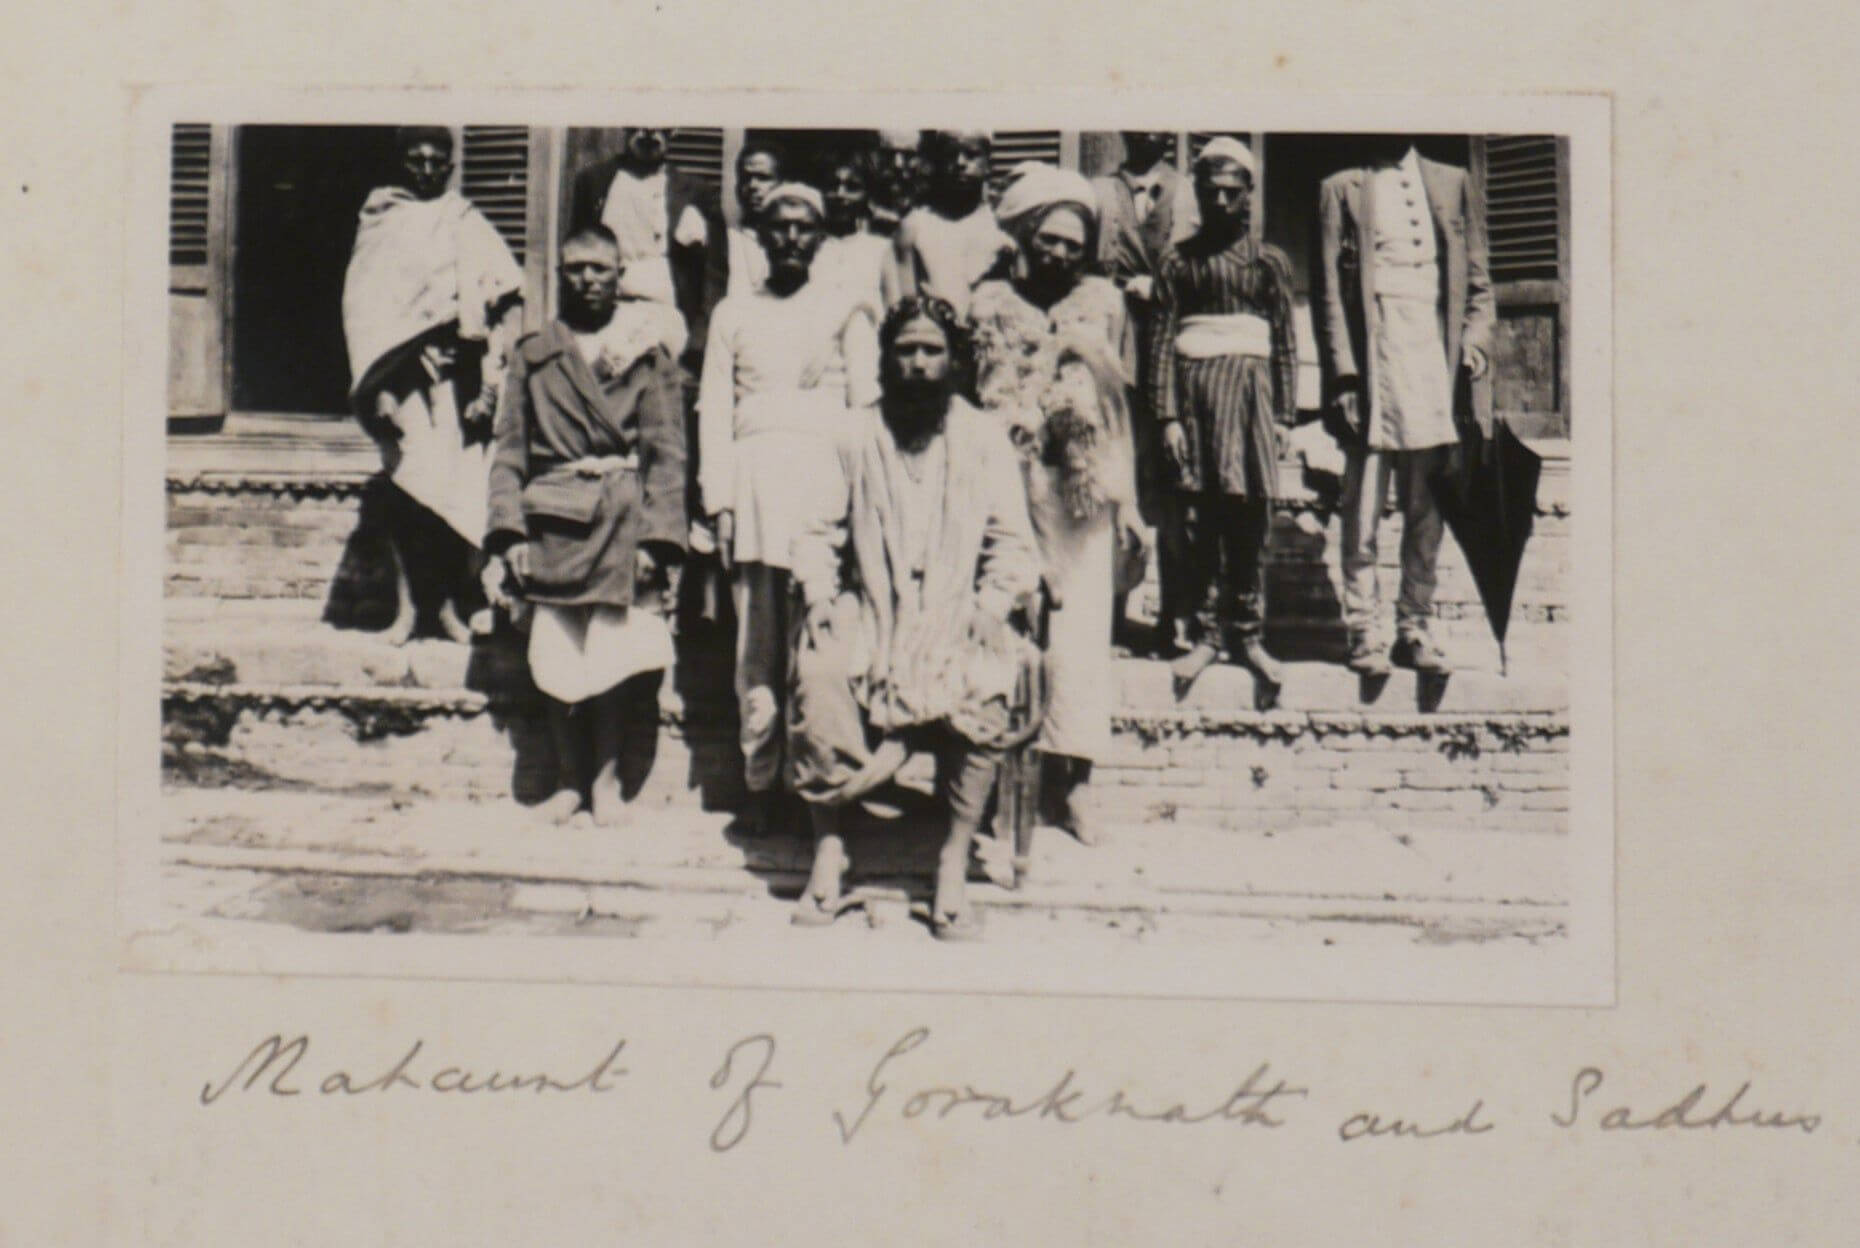 Mahaunt of Goraknath and Sadhus